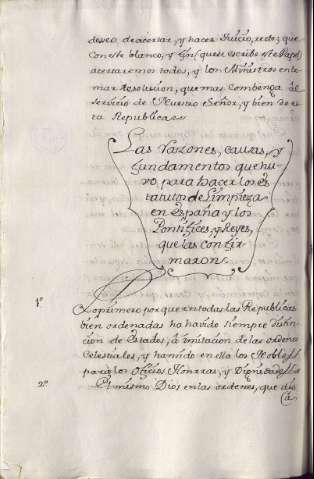 deseo de acertar, y hacer Juicio recto; que
con este blanco, y fin que se escribe este Papel
acertaremos todos, y los Ministros en to-
mar Resolucion, que mas combenga al
servicio de Nuestro Señor, y bien de es-
ta Republica.
Las razones, causas, y
fundamentos que hu-
vo para hacer los es-
tatutos de Limpieza
en España y los
Pontifices, y Reyes,
que las confir
maron.
1º
Lo primero porque en todas las Republicas
bien ordenadas ha havido siempre distin-
cion de Estados, à imitacion de las ordenes
Celestiales, y han sido en ella los Nobles
para los Oficios Honrras, y Dignidades
2º
El mismo Dios en las ordenes, que dió
(à